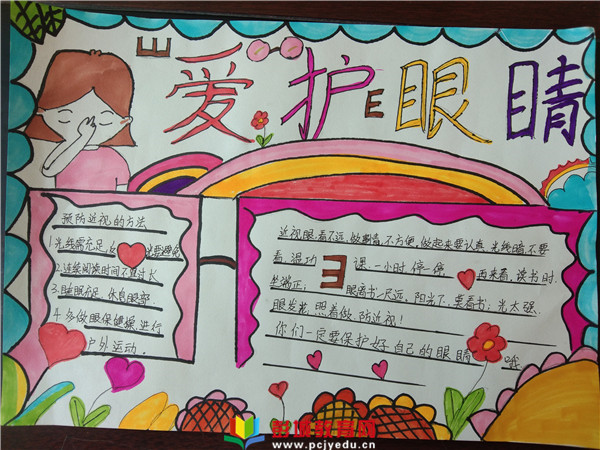 爱护E眼睛
预防近视的方法
1.光线需充足,光要避免
2.连续阅读时间不宜过长
3.睡眠充足,休息眼部.
4.多做眼保健操,进行
户外运动.
近视眼,看不远,做事情,不方便,做起来要认真,光线暗,不要
看,温功课,一小时,停一停再来看,读书时
坐端正,眼离书一尺远,阳光下,要看书,光太强
眼发花,照着做,防近视!
你们一定要保护好自己的眼睛哦
www.pcjyedu.cn